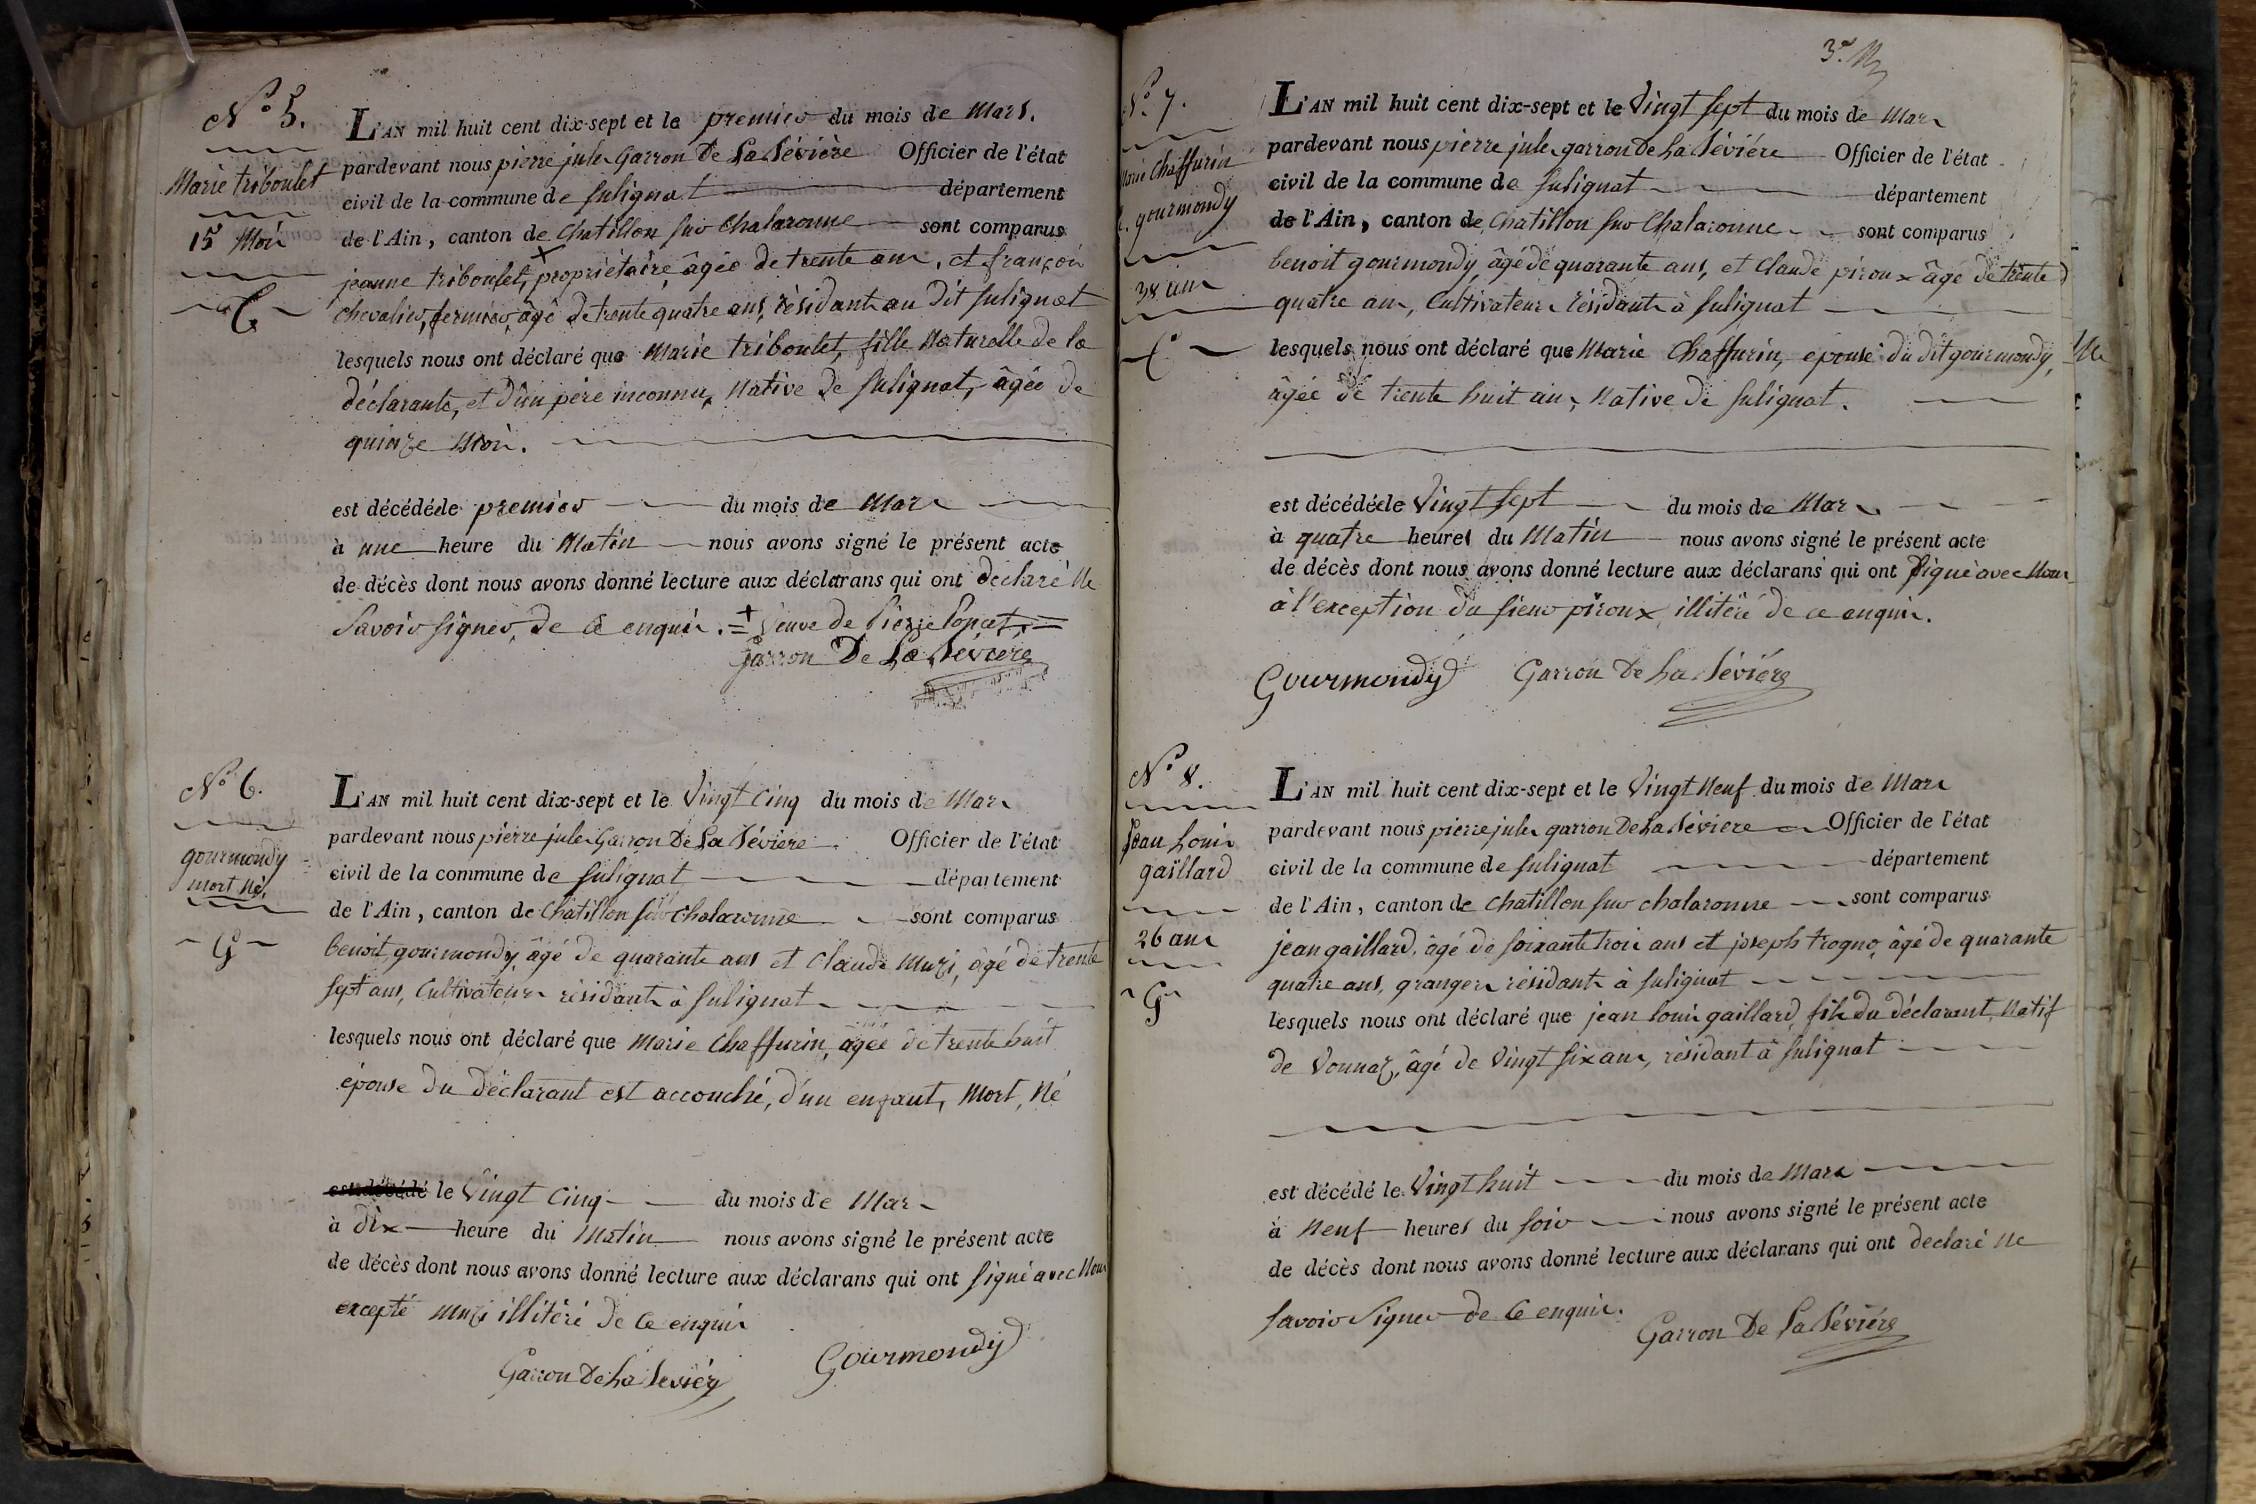 N° 5.
Marie triboulet
15 Mois
L'AN mil huit cent dix-sept et le premier du mois de Mars.
pardevant nous pierre jules Garron De La Sévière Officier de l'état
civil de la commune de Sulignat département
de l'Ain, canton de Chatillon sur Chalaronne sont comparus
jeanne triboulet, + propriétaire, âgée de trente ans, et françois
chevalier, fermier, âgé de trente quatre ans, résidants au Dit Sulignat
lesquels nous ont déclaré que Marie triboulet, fille Naturelle de la
déclarante, et D'un père inconnu, Native de Sulignat, âgée de
quinze Mois.
est décédé le premier du mois de Mars
à une heure du Matin nous avons signé le présent acte
de décès dont nous avons donné lecture aux déclarans qui ont declaré Ne
Savoir signer, De ce enquis. = + Veuve de Pierre Poncet, =
Garron De La Sévière
N° 6.
gourmondy
mort Né.
G
L'AN mil huit cent dix-sept et le Vingt Cinq du mois de Mars
pardevant nous pierre jules Garron De La Sévière Officier de l'état
civil de la commune de Sulignat département
de l'Ain, canton de Chatillon sur chalaronne sont comparus
benoit gourmondy, âgé de quarante ans et Claude Muzi, âgé de trente
sept ans, Cultivateurs résidants à Sulignat
lesquels nous ont déclaré que Marie Chaffurin, âgée de trente huit
épouse du déclarant est accouché, d'un enfant, Mort, Né
est décédé le Vingt Cinq du mois de Mars
à dix heure du Matin nous avons signé le présent acte
de décès dont nous avons donné lecture aux déclarans qui ont signé avec Nous
excepté Muzi illitéré de Ce enquis
Garron De La Sévière Gourmondy
3e.
N° 7.
Marie Chaffurin
gourmondy
38 ans
L'AN mil huit cent dix-sept et le Vingt sept du mois de Mars
pardevant nous pierre jules garron De La Sévière Officier de l'état
civil de la commune de Sulignat département
de l'Ain, canton de Chatillon sur Chalaronne sont comparus
benoit gourmondy, âgé de quarante ans, et Claude piroux âgé de trente
quatre ans, Cultivateurs résidants à Sulignat
lesquels nous ont déclaré que Marie Chaffurin, epouse du dit gourmondy,
âgée de trente huit ans, Native de Sulignat.
est décédé le Vingt sept du mois de Mars
à quatre heures du Matin nous avons signé le présent acte
de décès dont nous avons donné lecture aux déclarans qui ont signé avec Nous
à l'exception du sieur piroux, illitéré de ce enquis.
Gourmondy Garron De La Sévière
N° 8.
Jean Louis
gaillard
26 ans
G
L'AN mil huit cent dix-sept et le Vingt Neuf du mois de Mars
pardevant nous pierre jules garron De La Sévière Officier de l'état
civil de la commune de Sulignat département
de l'Ain, canton de Chatillon sur chalaronne sont comparus
jean gaillard, âgé de soixante trois ans et joseph trogno, âgé de quarante
quatre ans, grangers résidants à Sulignat
lesquels nous ont déclaré que jean louis gaillard, fils du déclarant, Natif
de Vonnaz, âgé de Vingt six ans, résidant à Sulignat
est décédé le Vingt huit du mois de Mars
à Neuf heures du soir nous avons signé le présent acte
de décès dont nous avons donné lecture aux déclarans qui ont declaré Ne
Savoir Signer de Ce enquis.
Garron De La Sévière